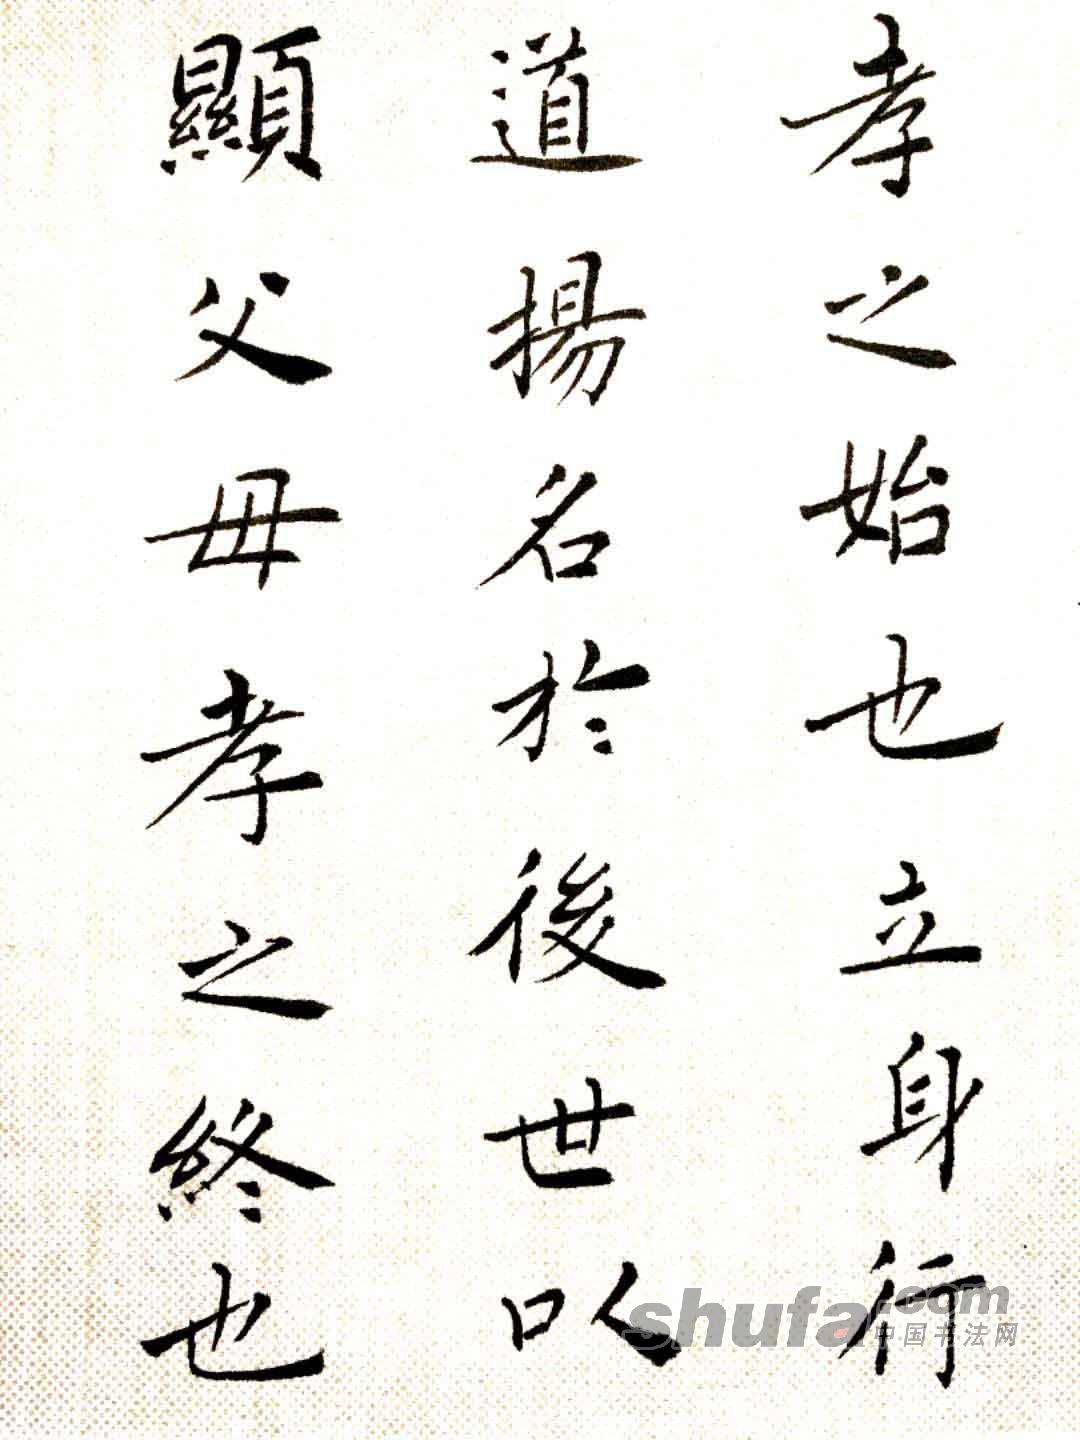 孝之始也立身行
道揚名於後世以
顯父母孝之終也
shufa.com
中国书法网